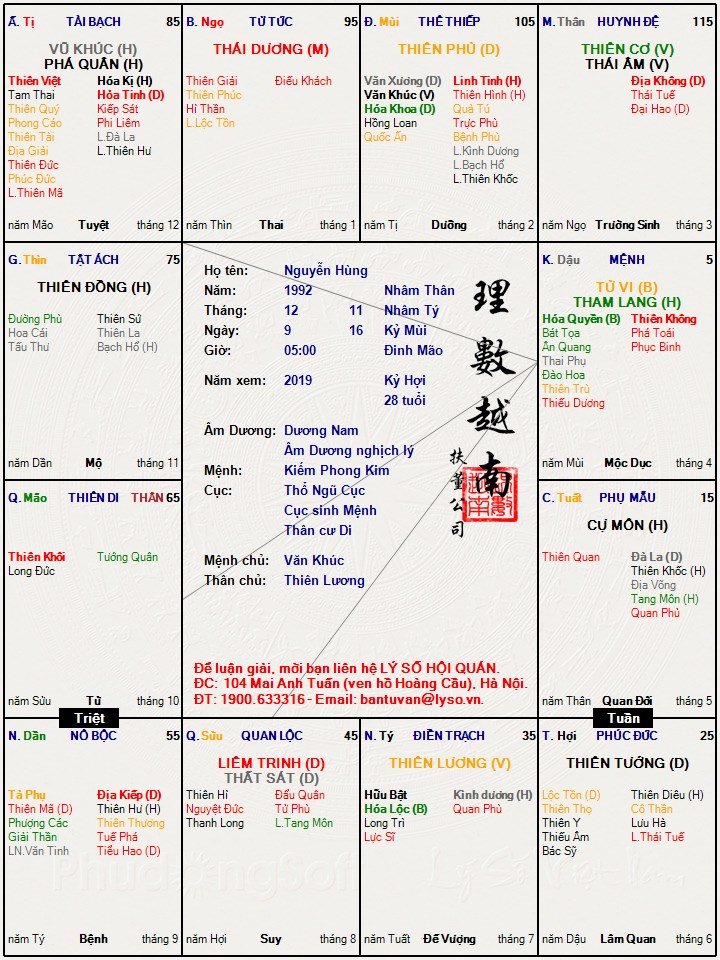 Ấ. Tị TÀI BẠCH 85
VŨ KHÚC (H)
PHÁ QUÂN (H)
Thiên Việt Hóa Kị (H)
Tam Thai Hỏa Tinh (D)
Thiên Quý Kiếp Sát
Phong Cáo Phi Liêm
Thiên Tài L.Đà La
Địa Giải L.Thiên Hư
Thiên Đức
Phúc Đức
L.Thiên Mã
năm Mão Tuyệt tháng 12
B. Ngọ TỬ TỨC 95
THÁI DƯƠNG (M)
Thiên Giải Điếu Khách
Thiên Phúc
Hỉ Thần
L.Lộc Tồn
năm Thìn Thai tháng 1
Đ. Mùi THÊ THIẾP 105
THIÊN PHỦ (D)
Văn Xương (D) Linh Tinh (H)
Văn Khúc (V) Thiên Hình (H)
Hóa Khoa (D) Quả Tú
Hồng Loan Trực Phù
Quốc Ấn Bệnh Phù
L.Kình Dương
L.Bạch Hổ
L.Thiên Khốc
năm Tị Dưỡng tháng 2
M. Thân HUYNH ĐỆ 115
THIÊN CƠ (V)
THÁI ÂM (V)
Địa Không (D)
Thái Tuế
Đại Hao (D)
năm Ngọ Trường Sinh tháng 3
G. Thìn TẬT ÁCH 75
THIÊN ĐỒNG (H)
Đường Phù Thiên Sứ
Hoa Cái Thiên La
Tấu Thư Bạch Hổ (H)
năm Dần Mộ tháng 11
Họ tên: Nguyễn Hùng
Năm: 1992 Nhâm Thân
Tháng: 12 11 Nhâm Tý
Ngày: 9 16 Kỷ Mùi
Giờ: 05:00 Đinh Mão
Năm xem: 2019 Kỷ Hợi
28 tuổi
Âm Dương: Dương Nam
Âm Dương nghịch lý
Mệnh: Kiếm Phong Kim
Cục: Thổ Ngũ Cục
Cục sinh Mệnh
Thân cư Di
Mệnh chủ: Văn Khúc
Thân chủ: Thiên Lương
理數越南
扶董公司
Để luận giải, mời bạn liên hệ LÝ SỐ HỘI QUÁN.
ĐC: 104 Mai Anh Tuấn (ven hồ Hoàng Cầu), Hà Nội.
ĐT: 1900.633316 - Email: bantuvan@lyso.vn.
K. Dậu MỆNH 5
TỬ VI (B)
THAM LANG (H)
Hóa Quyền (B) Thiên Không
Bát Tọa Phá Toái
Ân Quang Phục Binh
Thai Phụ
Đào Hoa
Thiên Trù
Thiếu Dương
năm Mùi Mộc Dục tháng 4
Q. Mão THIÊN DI THÂN 65
Thiên Khôi Tướng Quân
Long Đức
năm Sửu Tử tháng 10
Triệt
C. Tuất PHỤ MẪU 15
CỰ MÔN (H)
Thiên Quan Đà La (D)
Thiên Khốc (H)
Địa Võng
Tang Môn (H)
Quan Phủ
năm Thân Quan Đới tháng 5
Tuần
N. Dần NÔ BỘC 55
Tả Phụ Địa Kiếp (D)
Thiên Mã (D) Thiên Hư (H)
Phượng Các Thiên Thương
Giải Thần Tuế Phá
LN.Văn Tinh Tiểu Hao (D)
năm Tý Bệnh tháng 9
Q. Sửu QUAN LỘC 45
LIÊM TRINH (D)
THẤT SÁT (D)
Thiên Hỉ Đẩu Quân
Nguyệt Đức Tử Phù
Thanh Long L.Tang Môn
năm Hợi Suy tháng 8
N. Tý ĐIỀN TRẠCH 35
THIÊN LƯƠNG (V)
Hữu Bật Kình dương (H)
Hóa Lộc (B) Quan Phù
Long Trì
Lực Sĩ
năm Tuất Đế Vượng tháng 7
T. Hợi PHÚC ĐỨC 25
THIÊN TƯỚNG (D)
Lộc Tồn (D) Thiên Diêu (H)
Thiên Thọ Cô Thần
Thiên Y Lưu Hà
Thiếu Âm L.Thái Tuế
Bác Sỹ
năm Dậu Lâm Quan tháng 6